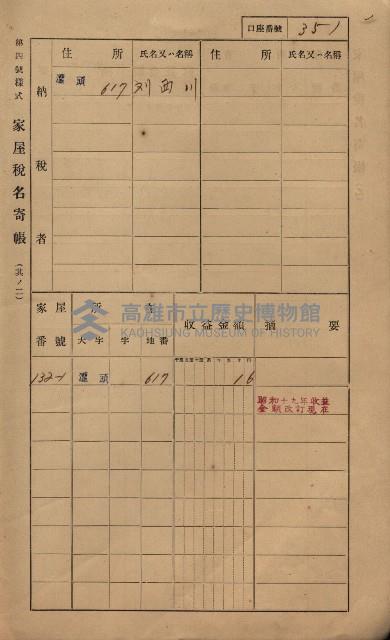 口座番號 351
第四號樣式 家屋稅名寄帳 (其ノ一)
納稅者
住所 氏名又ハ名稱 住所 氏名又ハ名稱
灣頭 617 刘西川
高雄市立歷史博物館
KAOHSIUNG MUSEUM OF HISTORY
家屋番號 所在 收益金額 摘要
大字 字 地番
132-1 灣頭 617 16
昭和十九年收益
金額改訂現在